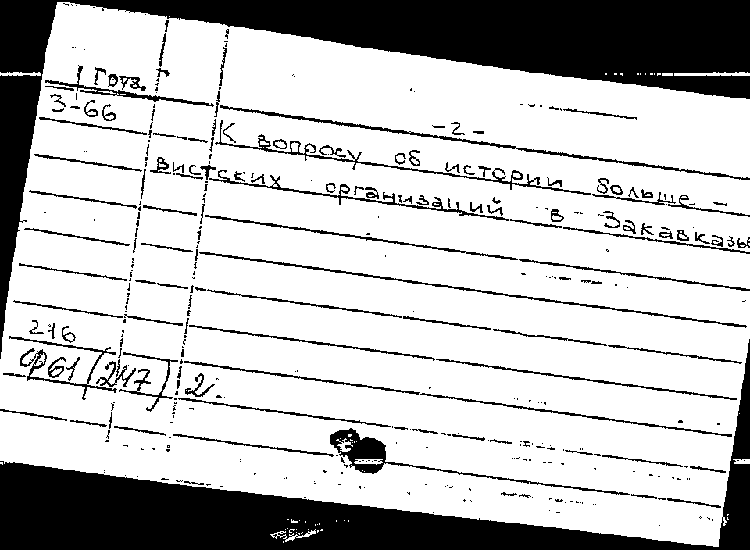 Груз.
З-66
- 2 -
К вопросу об истории больше -
вистских организаций в Закавказье
216
СР61 (2117) 2.